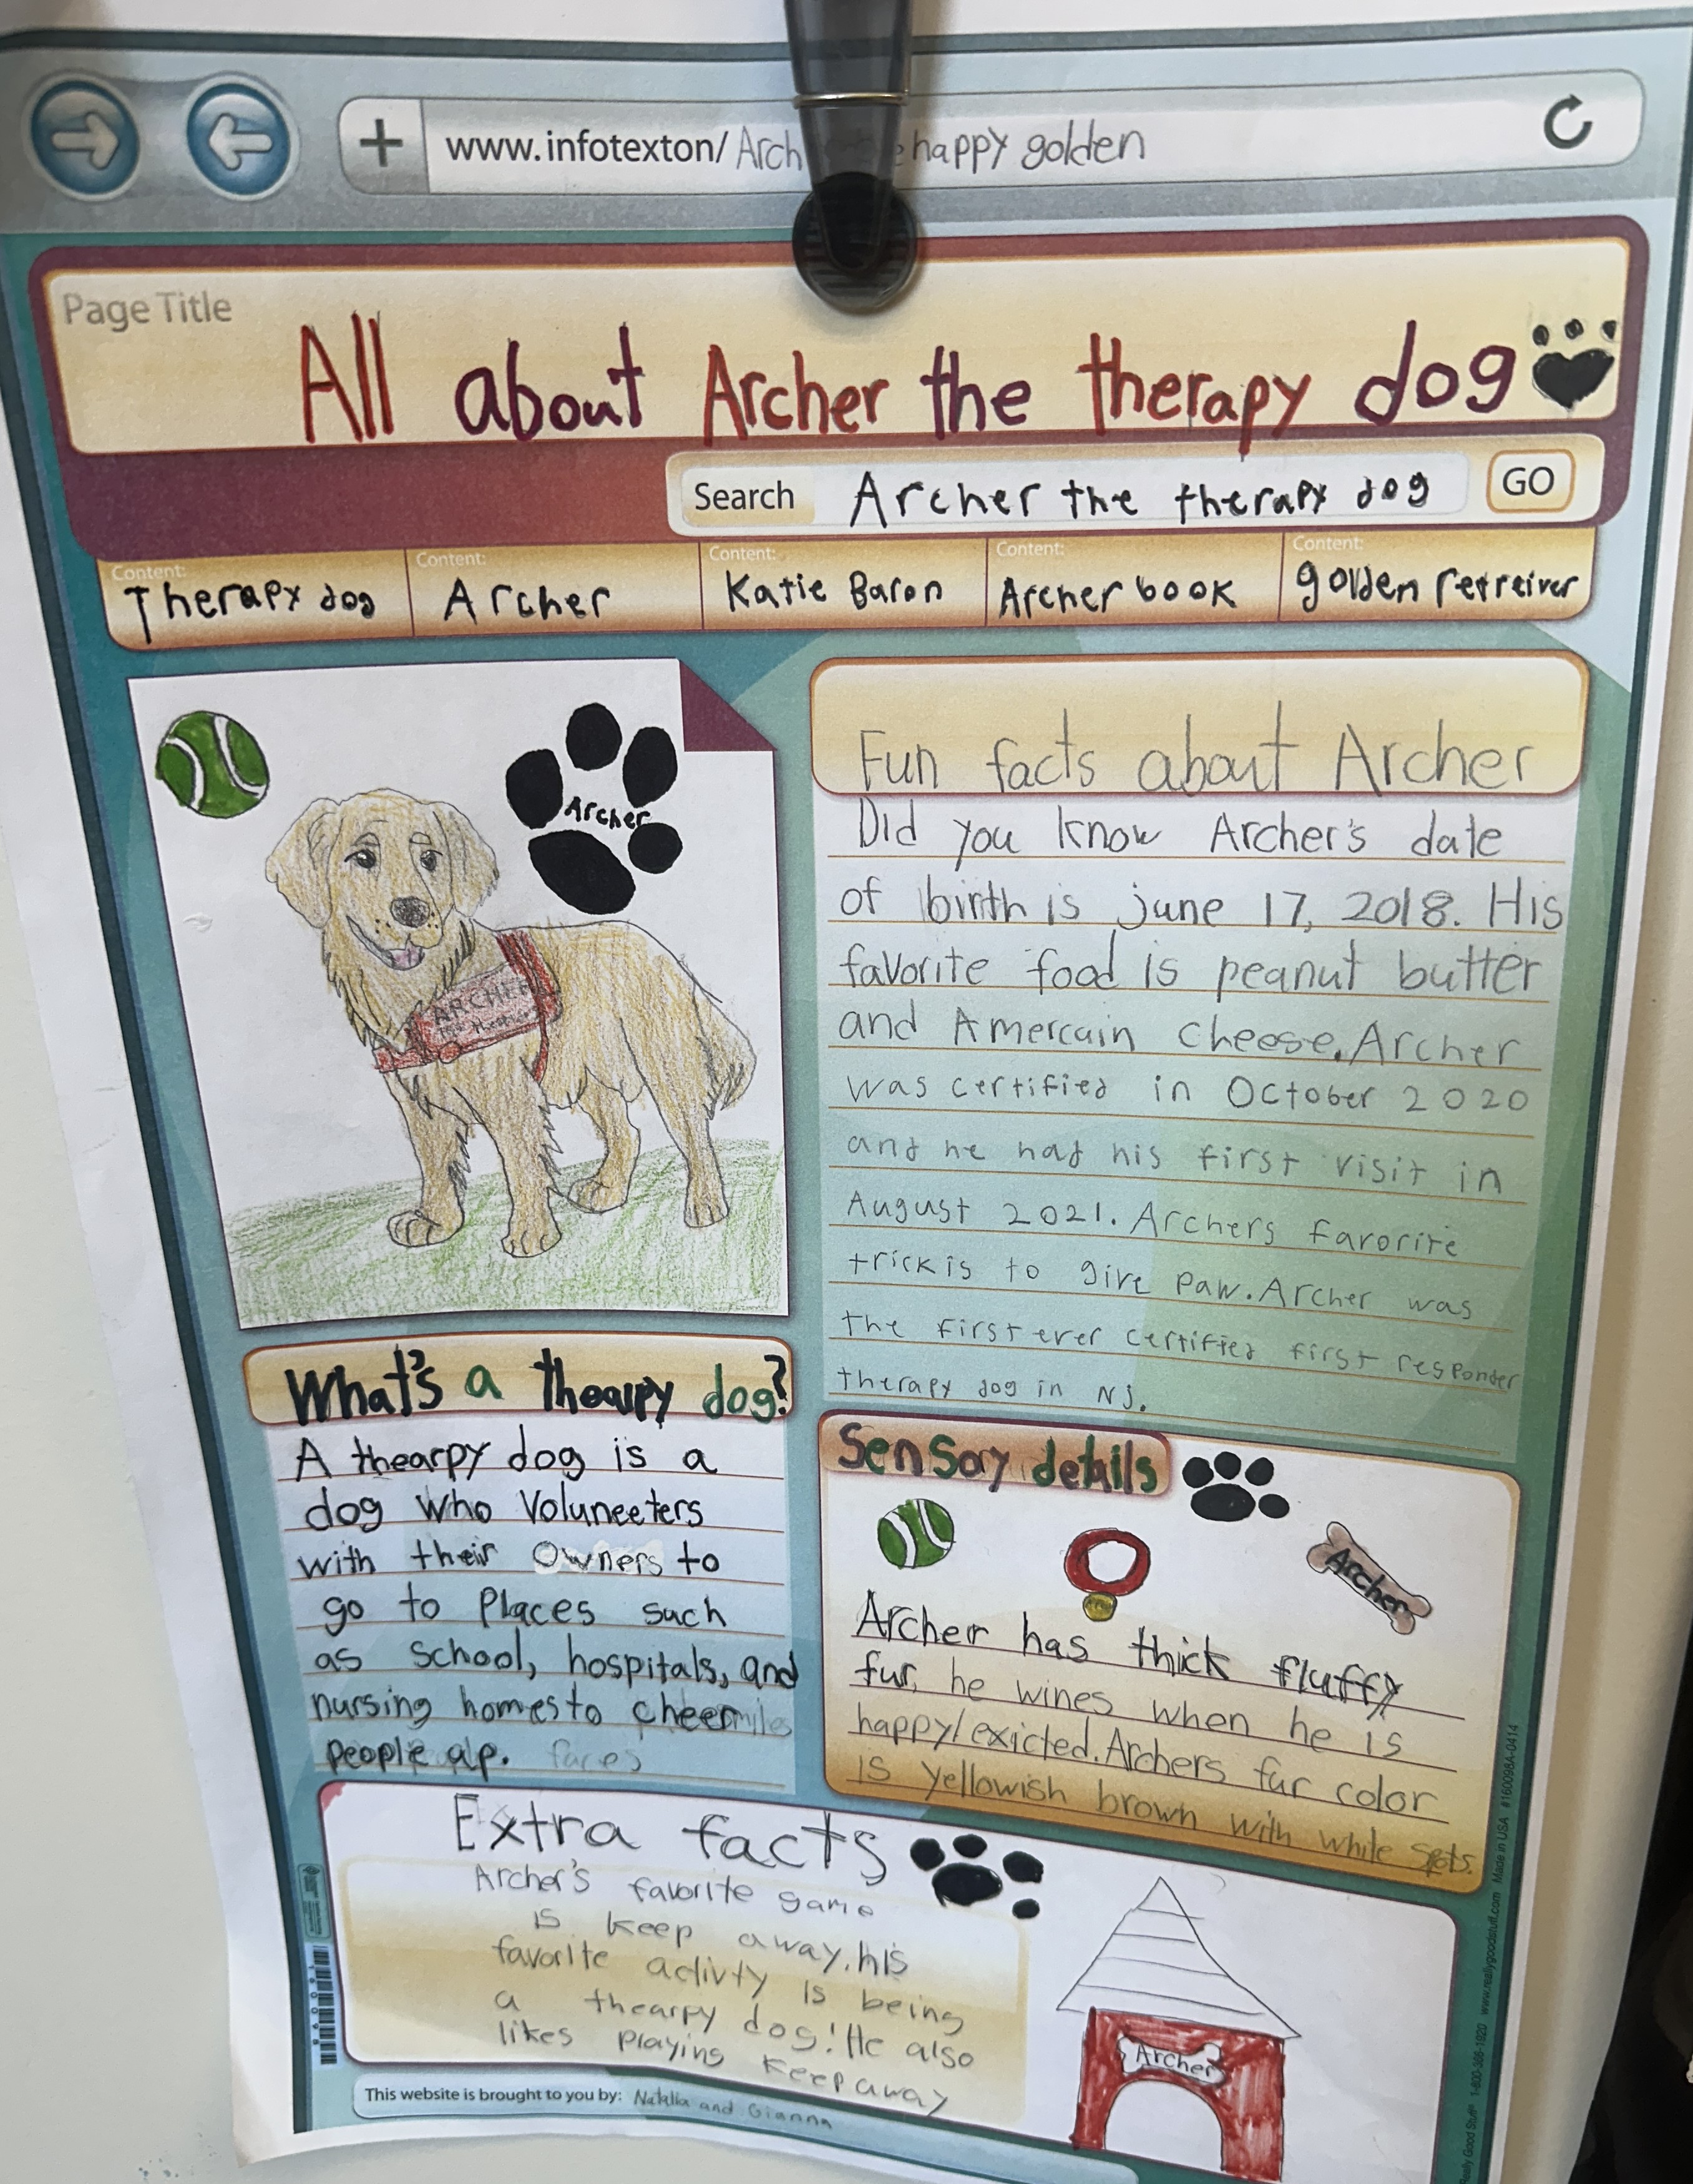 www.infotexton/ Arch happy golden
Page Title
All about Archer the therapy dog
Search Archer the therapy dog GO
Content: Therapy dog
Content: Archer
Content: Katie Baron
Content: Archer book
Content: golden retreiver
Archer
ARCHER
Fun facts about Archer
Did you know Archer's date
of birth is june 17, 2018. His
favorite food is peanut butter
and Amercain cheese. Archer
was certified in October 2020
and he had his first visit in
August 2021. Archers favorite
trick is to give paw. Archer was
the first ever certified first responder
therapy dog in NJ.
What's a thearpy dog?
A thearpy dog is a
dog who Voluneeters
with their owners to
go to places such
as school, hospitals, and
nursing homes to cheer
people up.
faces
Sensory details
Archer
Archer has thick fluffy
fur, he wines when he is
happy/exicted. Archers fur color
is yellowish brown with white spots.
Extra facts
Archer's favorite game
is keep away. his
favorite activty is being
a thearpy dog! He also
likes playing keep away
Archer
This website is brought to you by: Natalia and Gianna
Really Good Stuff 1-800-366-1920 www.reallygoodstuff.com Made in USA #160098A-0414